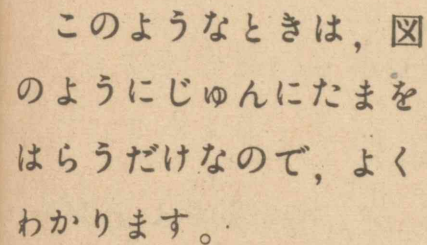 このようなときは，図
のようにじゅんにたまを
はらうだけなので，よく
わかります。